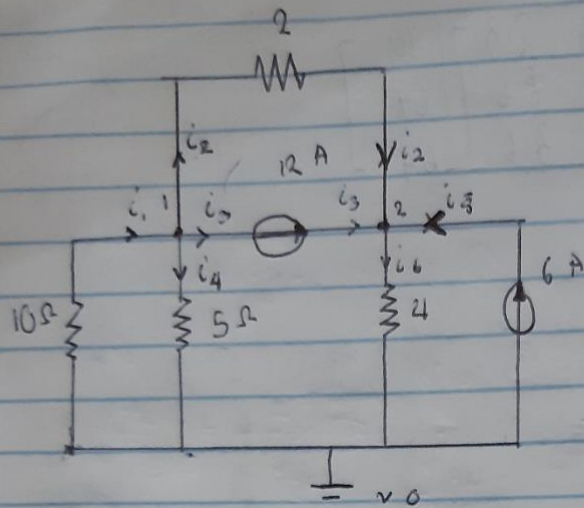 2
i2
12 A
i2
i1
1
i3
i3
2
i5
i4
i6
6 A
10Ω
5Ω
4
v0